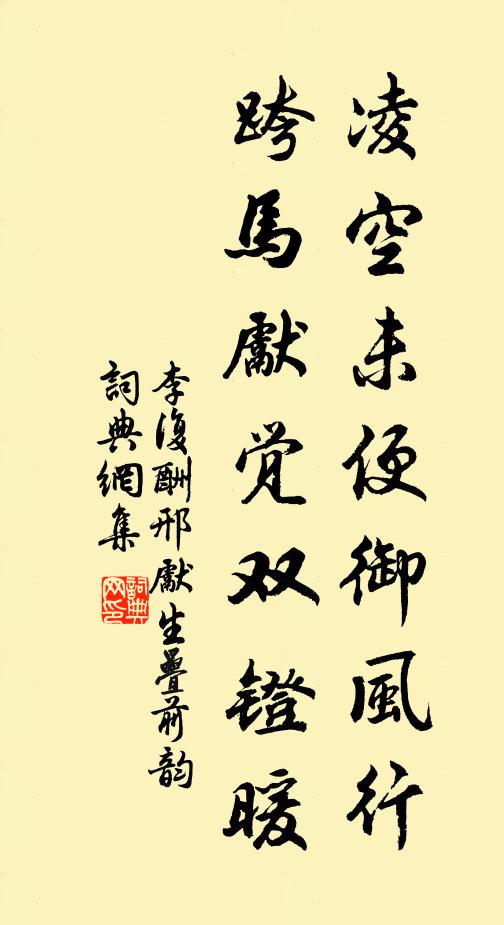 凌空未便御風行
跨馬獻覚双鐙暖
李復酬邢獻生疊前韵
詞典網集
詞典
网印